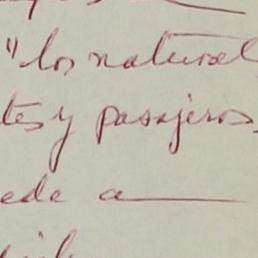 "los natural
tes y pasajeros,
ede a